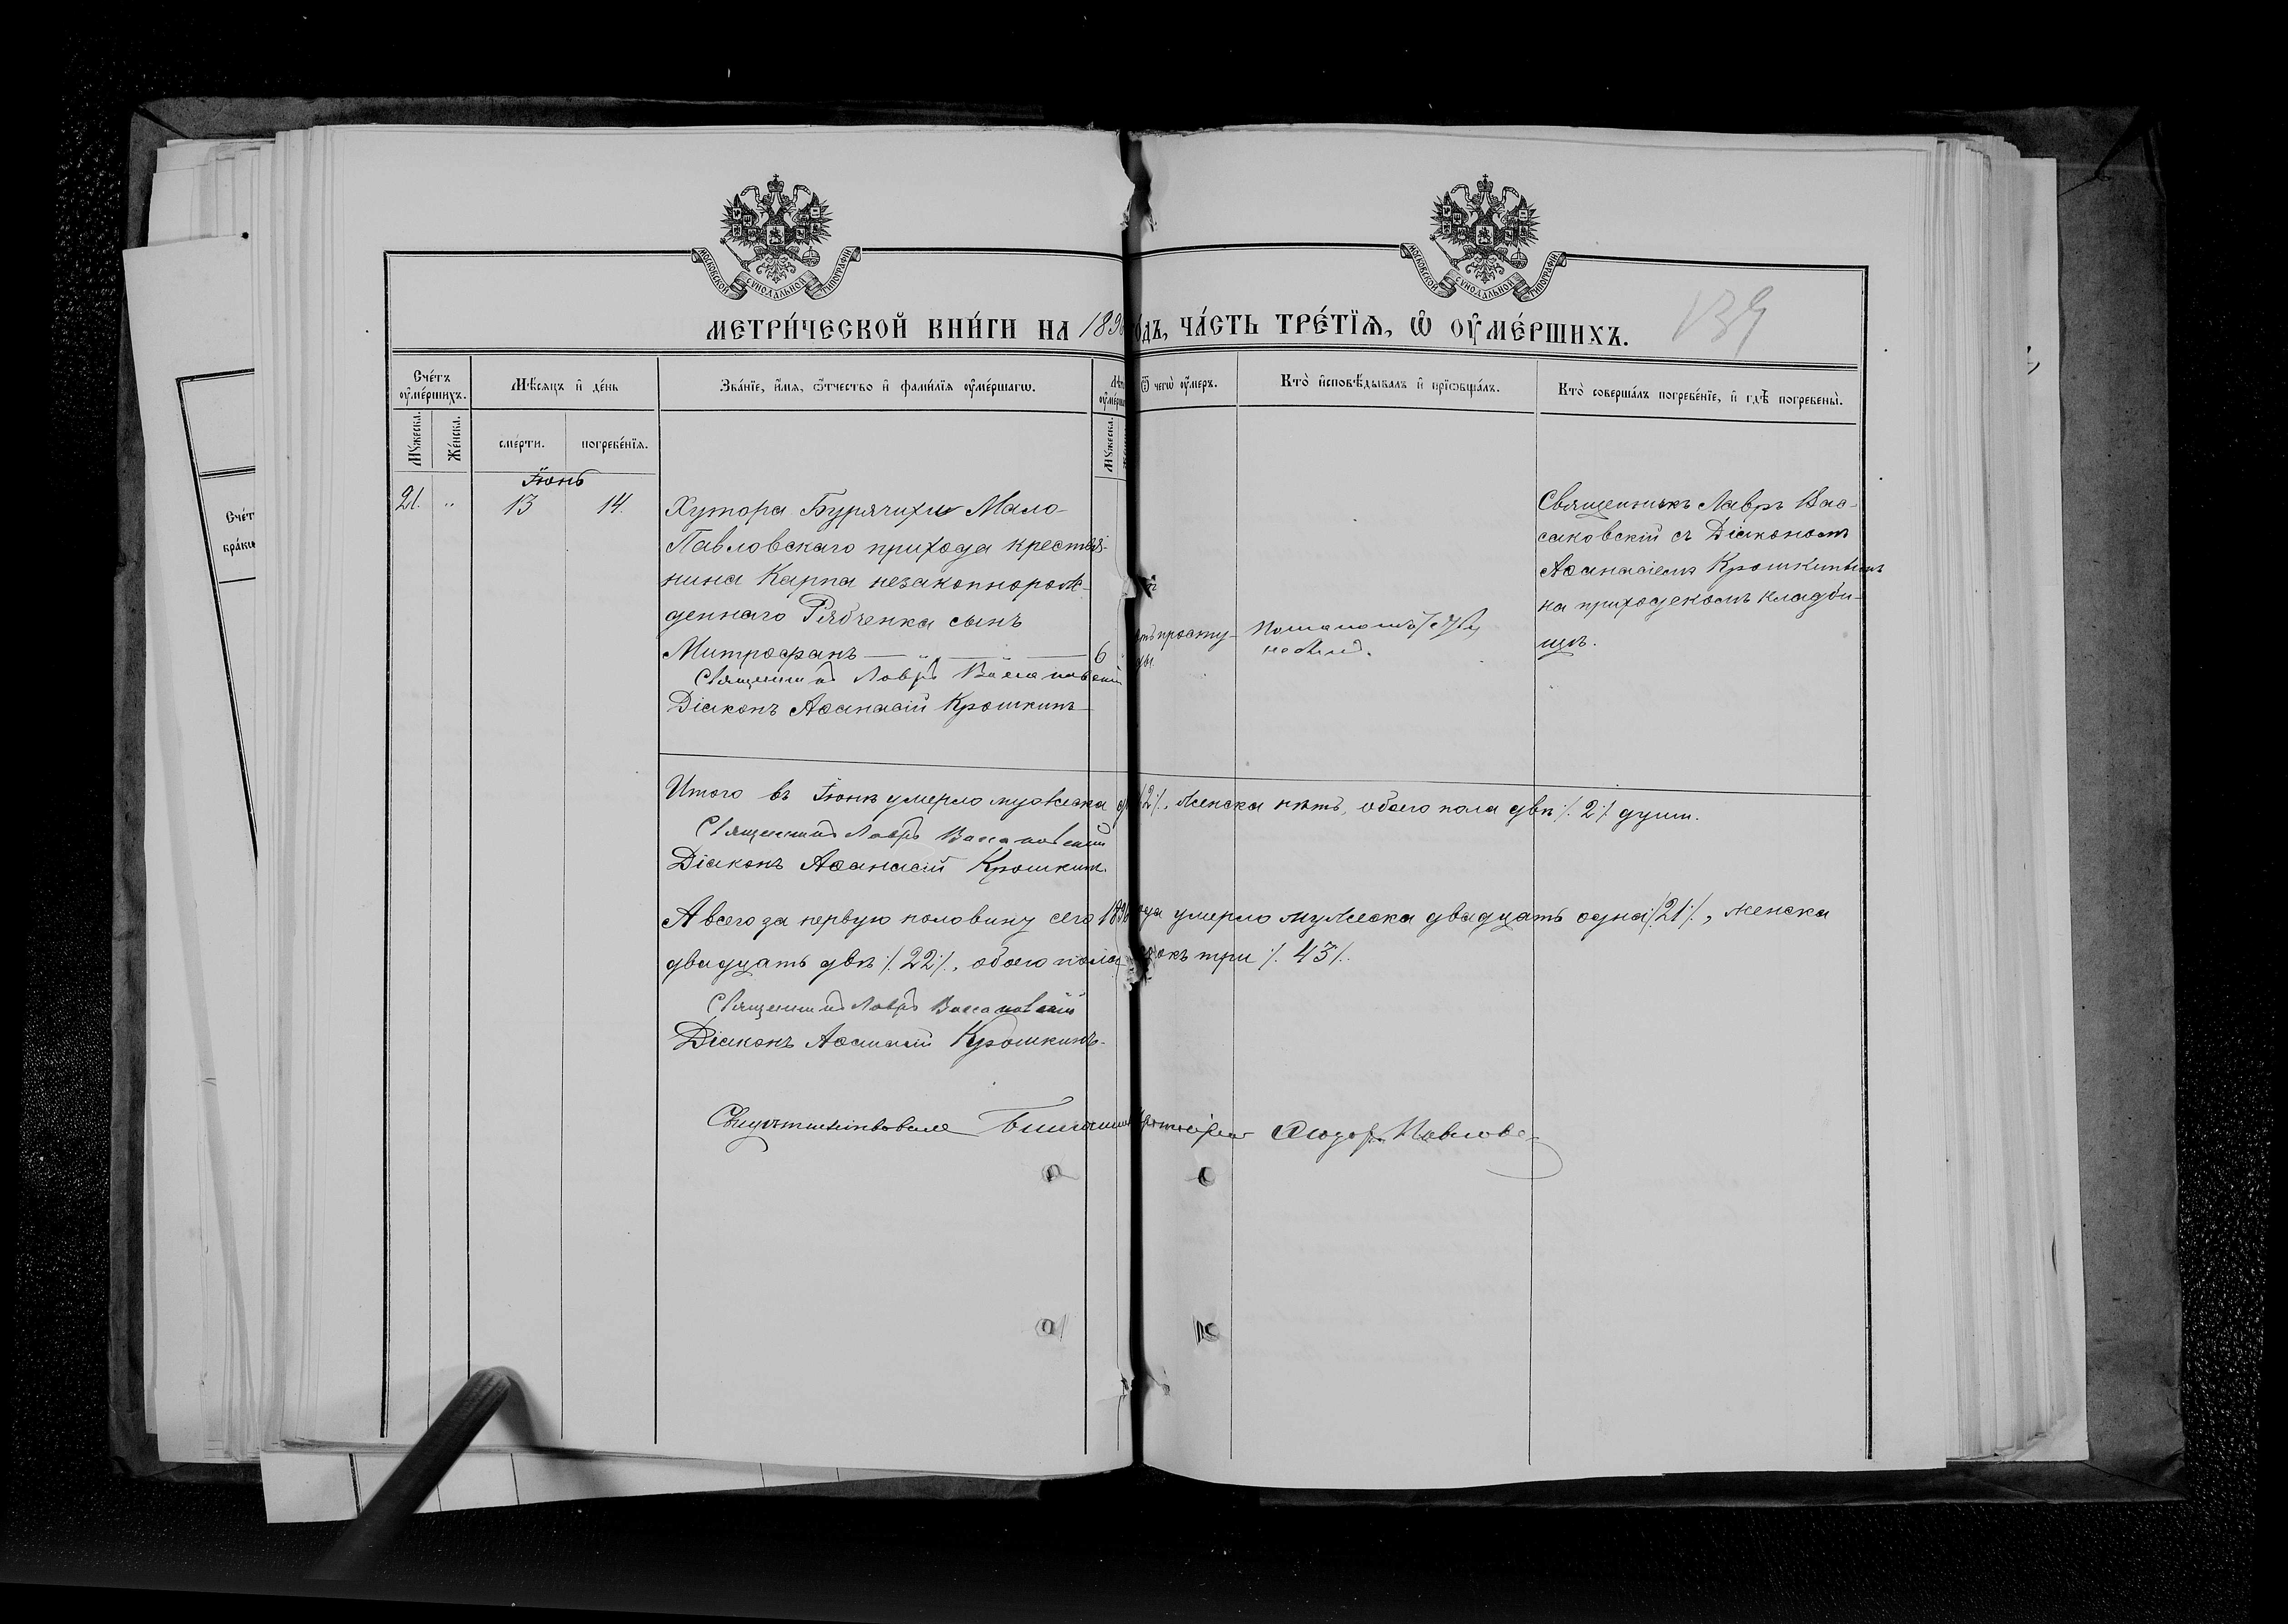 МОСКОВСКОЙ СѴНОДАЛЬНОЙ ТИПОГРАФІИ
МОСКОВСКОЙ СѴНОДАЛЬНОЙ ТИПОГРАФІИ
МЕТРИ́ЧЕСКОЙ КНИ́ГИ НА 189 одъ, ЧА́СТЬ ТРЕ́ТЇѦ, Ѡ ОУ҆МЕ́РШИХЪ.
139
Сче́тъ оу҆ме́ршихъ.
Мѣ́сяцъ и҆ де́нь
Зва́нїе, и҆́мѧ, ѻ҆́тчество и҆ фами́лїѧ оу҆ме́ршагѡ.
Ѿ чегѡ̀ оу҆́меръ.
Кто̀ и҆сповѣ́дывалъ и҆ прїѡбща́лъ.
Кто̀ соверша́лъ погребе́нїе, и҆ гдѣ̀ погребены̀.
Мꙋ́жеска.
Же́нска.
сме́рти.
погребе́нїѧ.
Мꙋ́жеска.
Сче́т
бра́ко
Іюнь
21. " 13 14.
Хутора Бурячихи Мало-
Павловскаго прихода крестья-
нина Карпа незаконнорож-
деннаго Рябченка сынъ
Митрофанъ — " — 6
Священникъ Лавръ Вассаковскій
Діаконъ Аѳанасій Крошкинъ
отъ просту-
ды.
Священникъ Лавръ Вас-
саковскій съ Діакономъ
Аѳанасіемъ Крошкинымъ
на приходскомъ кладби-
щѣ.
Итого въ Іюнѣ умерло мужеска д /2/., женска нѣтъ, обоего пола двѣ /.2/. души.
Священникъ Лавръ Вассаковскій
Діаконъ Аѳанасій Крошкинъ.
А всего за первую половину сего 189 ода умерло мужеска двадцать одна /.21/., женска
двадцать двѣ /.22/., обоего пола сорокъ три /.43/.
Священникъ Лавръ Вассаковскій
Діаконъ Аѳанасій Крошкинъ.
Протоіерей Ѳеодоръ Павловъ